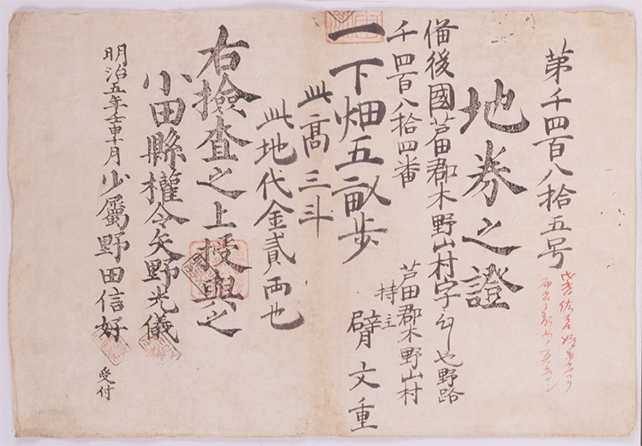 第千四百八拾五号
地券之證
備後國芦田郡木野山村字
也野路
千四百八拾四番
芦田郡木野山村
持主
文重
一下畑五畝歩
此髙三斗
此地代金貳両也
右撿査之上授與之
小田縣權令矢野光儀
明治五年壬申十月少属野田信好
受付